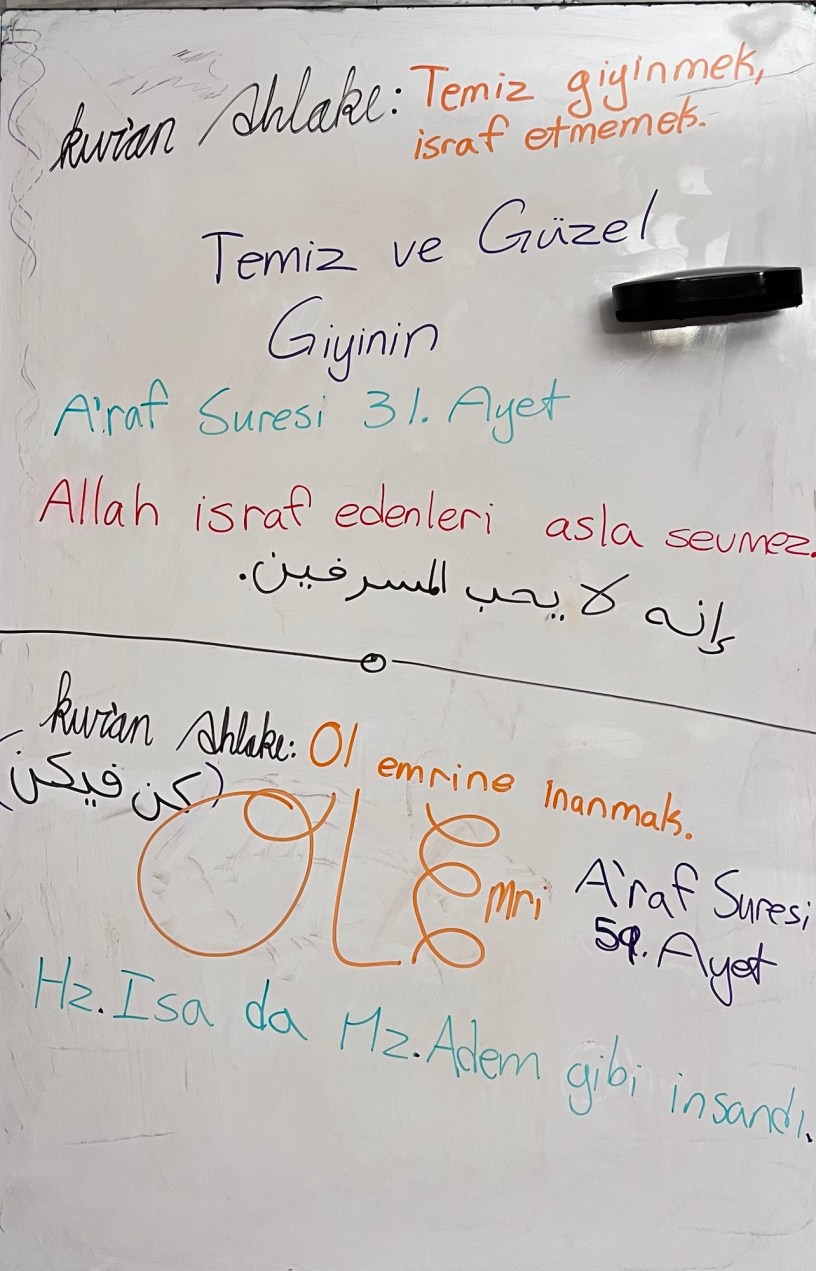 kuran Ahlakı: Temiz giyinmek,
israf etmemek.
Temiz ve Güzel
Giyinin
A'raf Suresi 31. Ayet
Allah israf edenleri asla sevmez.
إنه لا يحب المسرفين.
kuran Ahlakı: Ol emrine Inanmak.
(كن فيكن)
OL Emri
A'raf Suresi
59. Ayet
Hz. Isa da Hz. Adem gibi insandı.